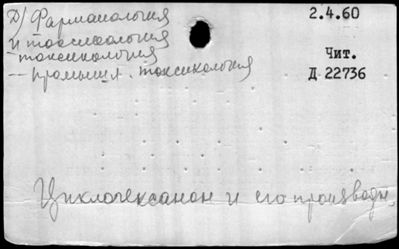 Д) Фармакология 2.4.60
и токсикология
- токсикология Чит.
-- промышл. токсикология Д 22736
Циклогексанон и его производн.